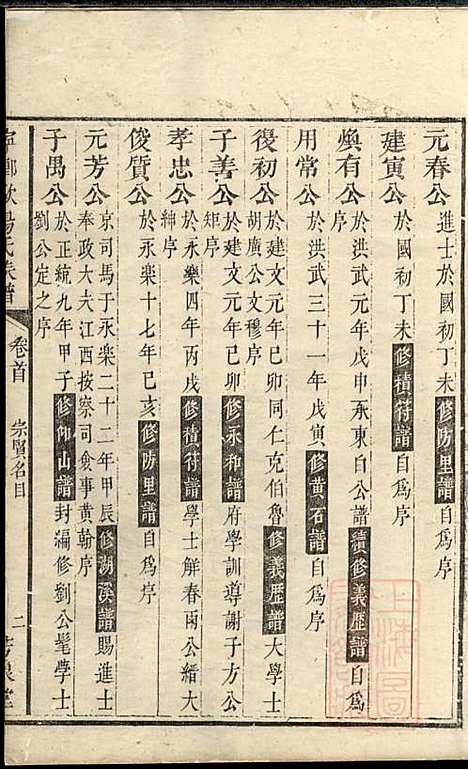 元春公 進士於國初丁未修防里譜自爲序
建寅公 於國初丁未修積符譜自爲序
煥有公 於洪武元年戊申承東白公譜續修義歷譜自爲
序
用常公 於洪武三十一年戊寅修黄石譜自爲序
復初公 於建文元年巳卯同仁克伯魯修義歷譜大學士
胡廣公文穆序
子善公 於建文元年巳卯修永和譜府學訓導謝子方公
矩序
孝忠公 於永樂四年丙戌修積符譜學士解春雨公縉大
紳序
俊質公 於永樂十七年巳亥修防里譜自爲序
元芳公 京司馬于永樂二十二年甲辰修湖溪譜賜進士
奉政大夫江西按察司僉事黄翰序
子禺公 於正統九年甲子修仰山譜封編修劉公髦學士
劉公定之序
歐陽氏族譜 卷首 宗賢名目 二